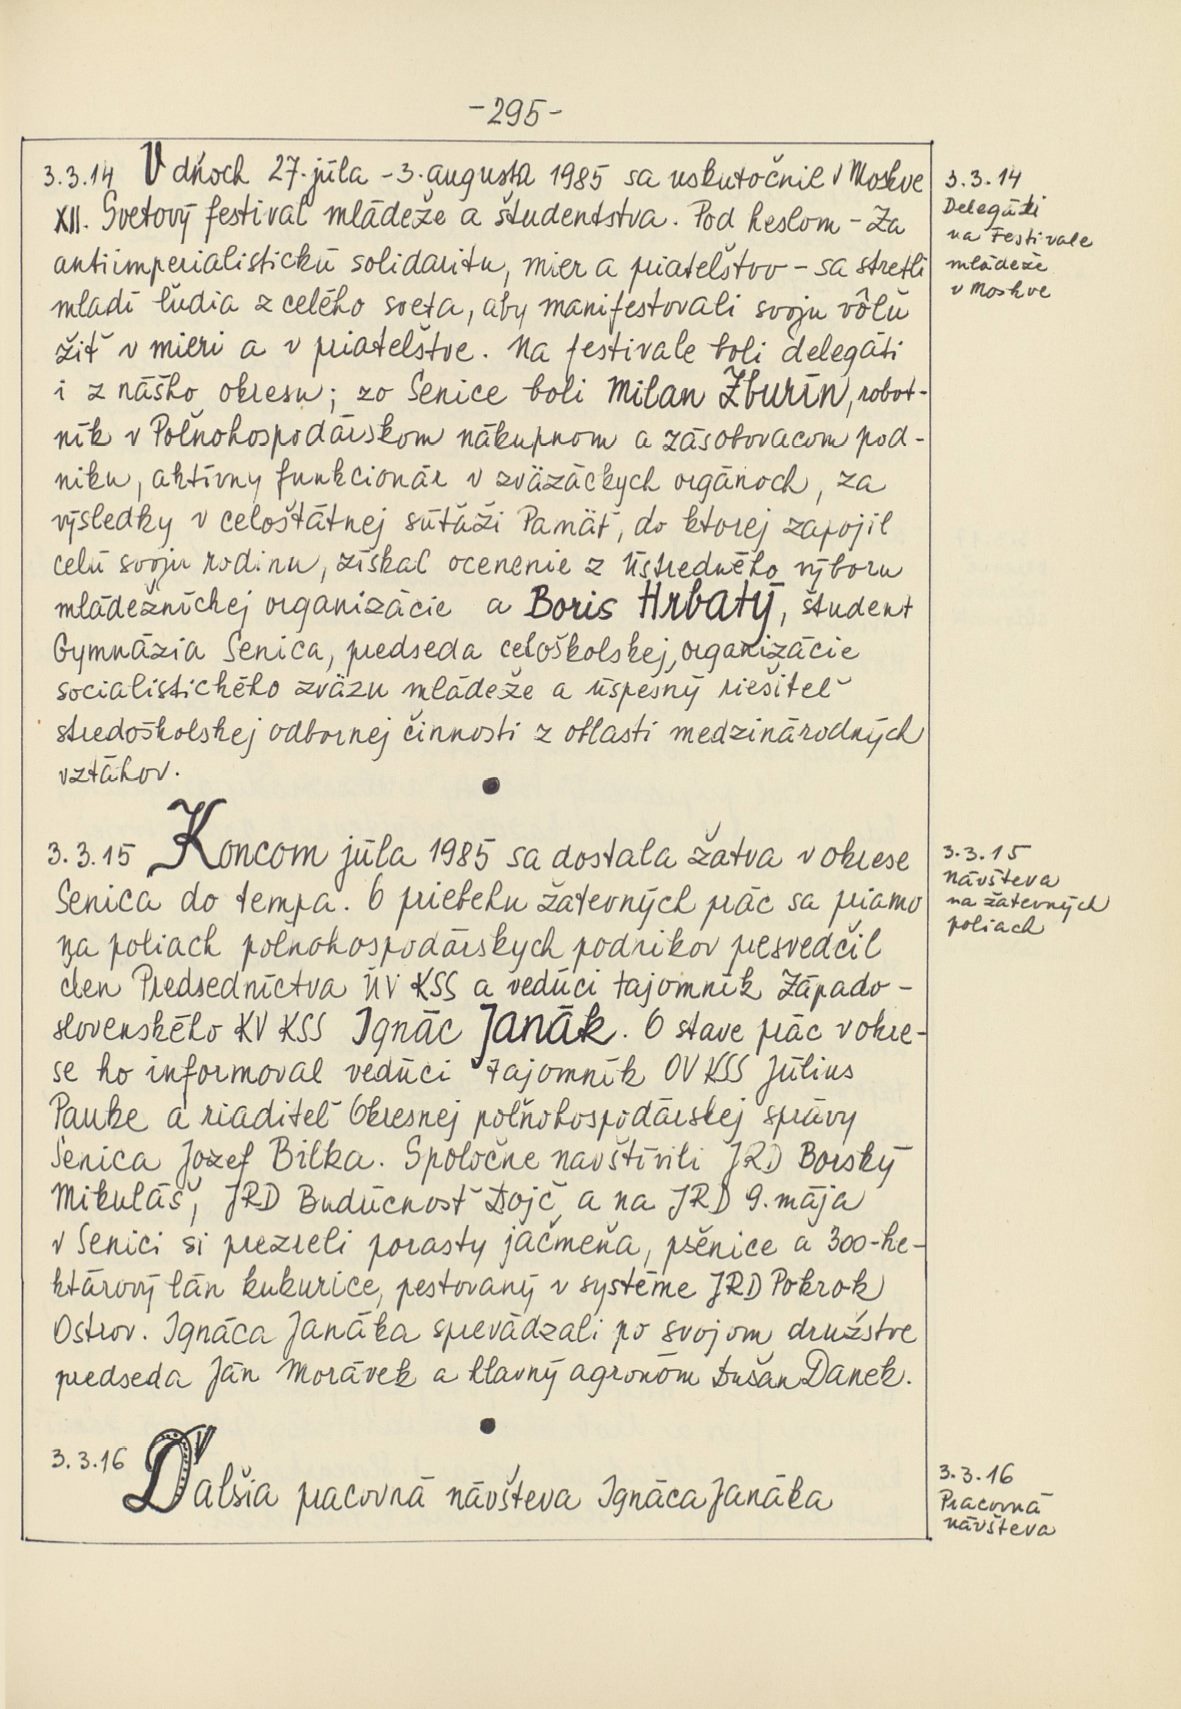 -295-
3.3.14 V dňoch 27. júla - 3. augusta 1985 sa uskutočnil v Moskve
XII. Svetový festival mládeže a študentstva. Pod heslom - Za
antiimperialistickú solidaritu, mier a priateľstvo - sa stretli
mladí ľudia z celého sveta, aby manifestovali svoju vôľu
žiť v mieri a v priateľstve. Na festivale boli delegáti
i z nášho okresu; zo Senice boli Milan Žburin, robot-
ník v Poľnohospodárskom nákupnom a zásobovacom pod-
niku, aktívny funkcionár v zväzáckych orgánoch, za
výsledky v celoštátnej súťaži Pamäť, do ktorej zapojil
celú svoju rodinu, získal ocenenie z Ústredného výboru
mládežníckej organizácie a Boris Hrbatý, študent
Gymnázia Senica, predseda celoškolskej organizácie
socialistického zväzu mládeže a úspešný riešiteľ
stredoškolskej odbornej činnosti z oblasti medzinárodných
vzťahov.
3.3.14
Delegáti
na Festivale
mládeže
v Moskve
3.3.15 Koncom júla 1985 sa dostala žatva v okrese
Senica do tempa. O priebehu žatevných prác sa priamo
na poliach poľnohospodárskych podnikov presvedčil
člen Predsedníctva ÚV KSS a vedúci tajomník Západo-
slovenského KV KSS Ignác Janák. O stave prác v okre-
se ho informoval vedúci tajomník OV KSS Július
Pauke a riaditeľ Okresnej poľnohospodárskej správy
Senica Jozef Bilka. Spoločne navštívili JRD Borský
Mikuláš, JRD Budúcnosť Dojč a na JRD 9. mája
v Senici si prezreli porasty jačmeňa, pšenice a 300-he-
ktárový lán kukurice, pestovaný v systéme JRD Pokrok
Ostrov. Ignáca Janáka sprevádzali po svojom družstve
predseda Ján Morávek a hlavný agronóm Dušan Danek.
3.3.15
Návšteva
na žatevných
poliach
3.3.16 Ďalšia pracovná návšteva Ignáca Janáka
3.3.16
Pracovná
návšteva